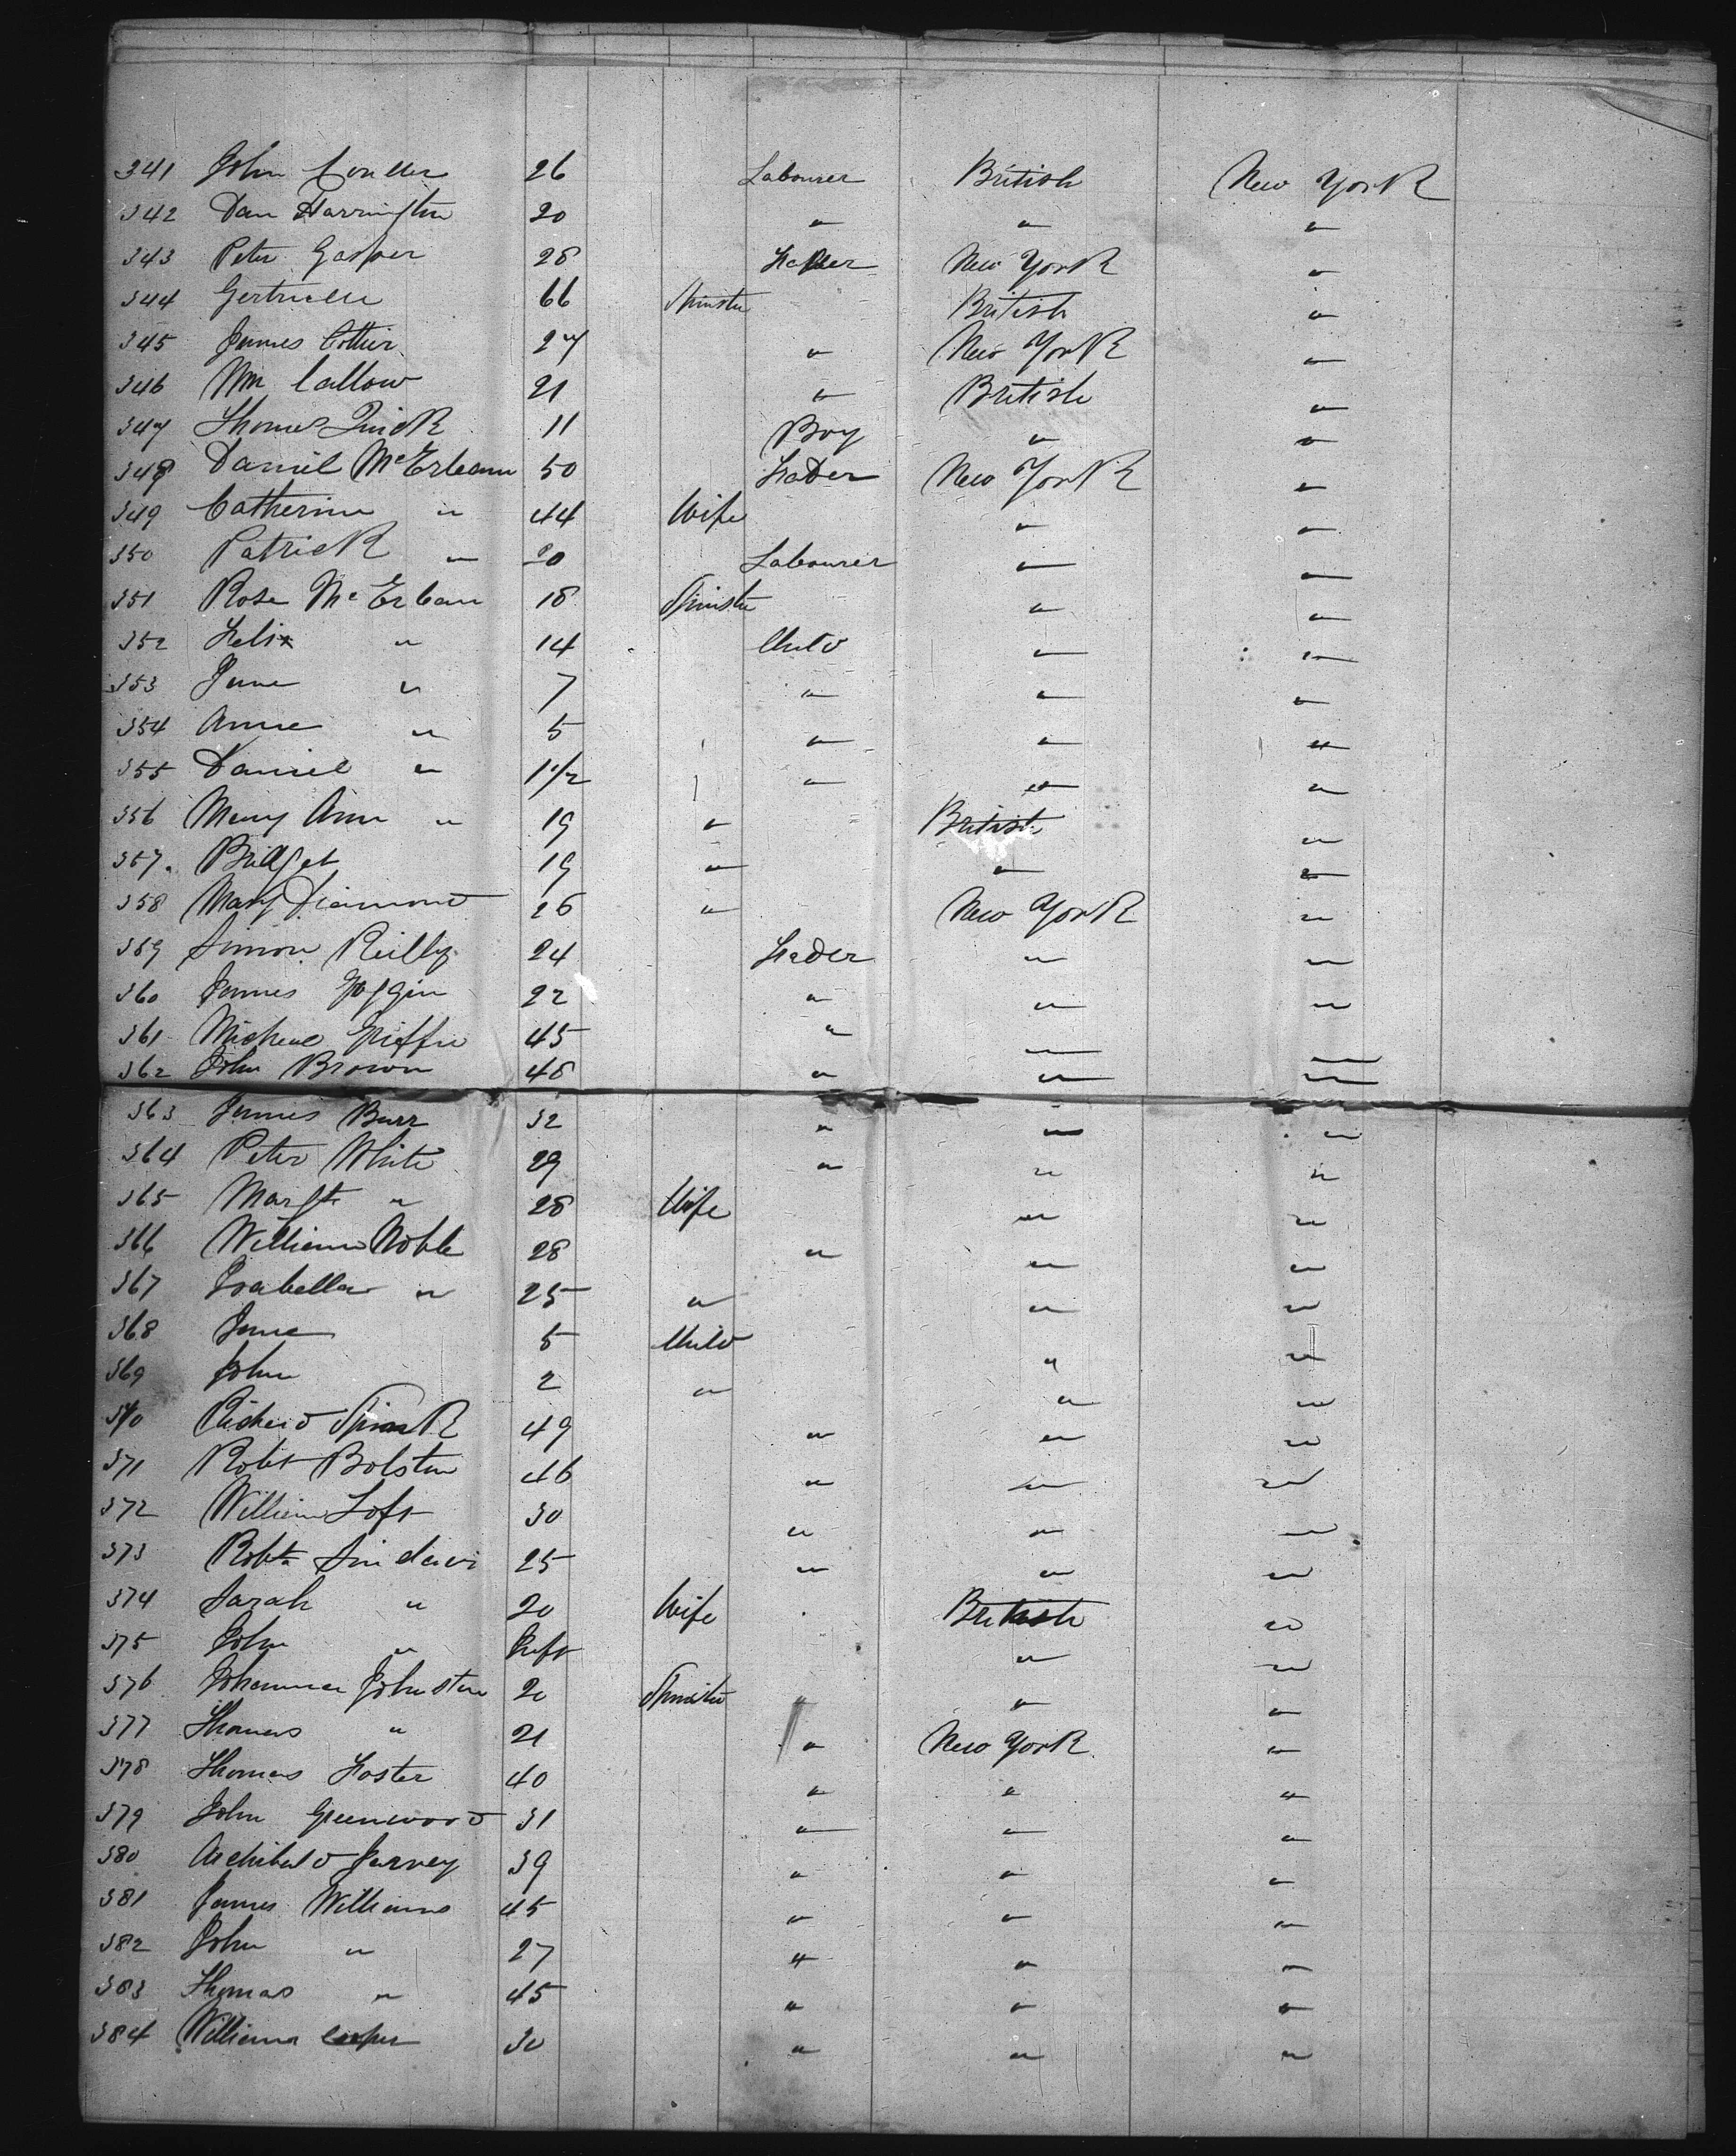 341 John Coulter 26 Labourer British New York
342 Dan Harrington 20 " " "
343 Peter Gasper 28 Trader New York "
344 Gertrude 66 Spinster British "
345 James Cottier 27 " New York "
346 Wm Callow 21 " British "
347 Thomas Quick 11 Boy " "
348 Daniel McErleann 50 Trader New York "
349 Catherine " 44 Wife " "
350 Patrick " 20 Labourer " "
351 Rose McErlean 18 Spinster " "
352 Felix " 14 Child " "
353 Jane " 7 " " "
354 Anne " 5 " " "
355 Daniel " 1 1/2 " " "
356 Mary Ann " 19 " British "
357 Bridget 19 " " "
358 Mary Diamond 26 " New York "
359 Simon Reilly 24 Trader " "
360 James Goggin 22 " " "
361 Micheal Griffin 45 " " "
362 John Brown 48 " " "
363 James Burr 32 " " "
364 Peter White 29 " " "
365 Margt " 28 Wife " "
366 William Noble 28 " " "
367 Isabella " 25 " " "
368 Jane 5 Child " "
369 John 2 " " "
370 Richard Spink 49 " " "
371 Robt Bolston 46 " " "
372 William Loft 30 " " "
373 Robt Sinclair 25 " " "
374 Sarah " 20 Wife British "
375 John " Inft " "
376 Johanna Johnston 20 Spinster " " "
377 Thomas " 21 " New York "
378 Thomas Foster 40 " " "
379 John Greenwood 31 " " "
380 Archibald Jarvey 39 " " "
381 James Williams 45 " " "
382 John " 27 " " "
383 Thomas " 45 " " "
384 William Cooper 30 " " "